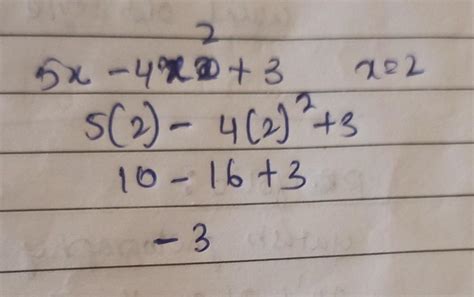 5x - 4x² + 3 x = 2
5(2) - 4(2)² + 3
10 - 16 + 3
- 3